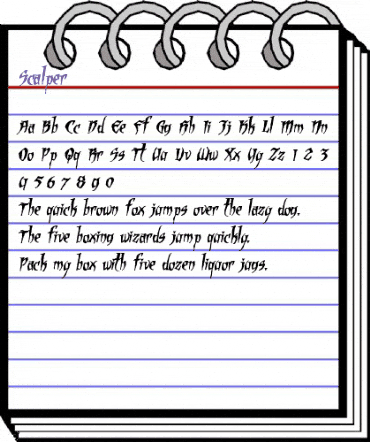 Scalper
Aa Bb Cc Dd Ee Ff Gg Hh Ii Jj Kk Ll Mm Nn
Oo Pp Qq Rr Ss Tt Uu Vv Ww Xx Yy Zz 1 2 3
4 5 6 7 8 9 0
The quick brown fox jumps over the lazy dog.
The five boxing wizards jump quickly.
Pack my box with five dozen liquor jugs.